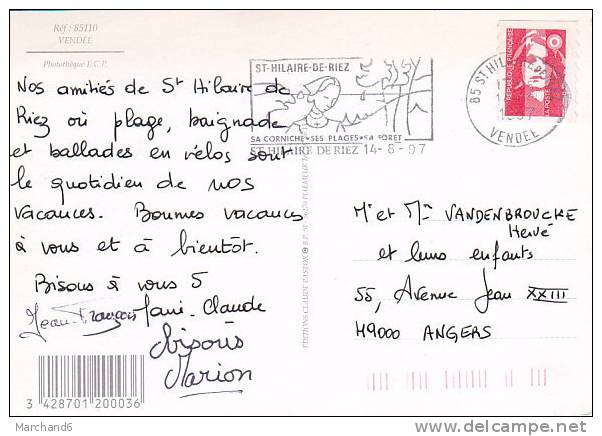 Réf : 85110
VENDÉE
Photothèque E.C.P.
Nos amitiés de St Hilaire de
Riez où plage, baignade
et ballades en vélos sont
le quotidien de nos
vacances. Bonnes vacances
à vous et à bientôt.
Bisous à vous 5
Jean-François Marie-Claude
bisous
Marion
3 428701 200036
ST-HILAIRE-DE-RIEZ
SA CORNICHE • SES PLAGES • SA FORET
ST HILAIRE DE RIEZ 14-8-97
85 ST HILAIRE DE
VENDEE
REPUBLIQUE FRANÇAISE
LA POSTE
EDITIONS CLAUDE PASTOR
Mr et Mme VANDENBROUCKE
Hervé
et leurs enfants
55, Avenue Jean XXIII
49000 ANGERS
Marchand6
http://www.delcampe.net